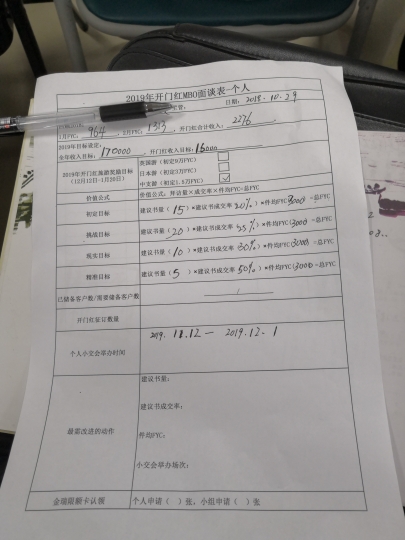 2019年开门红MBO面谈表-个人
日期：2018.10.29
1月FYC: 964，2月FYC: 1313，开门红合计收入：2276
2019年目标设定：
全年收入目标：170000，开门红收入目标：16000
2019年开门红旅游奖励目标
(12月12日-1月20日)
英国游（初定9万FYC）
日本游（初定3万FYC）
中支游（初定1.5万FYC）
价值公式
价值公式：拜访量×成交率×件均FYC=总FYC
初定目标
建议书量（15）×建议书成交率 20%）×件均FYC(3000 =总FYC
挑战目标
建议书量（20）×建议书成交率 35%）×件均FYC(3000 =总FYC
现实目标
建议书量（10）×建议书成交率 30%）×件均FYC(3000 =总FYC
精准目标
建议书量（5）×建议书成交率 50%）×件均FYC(3000 =总FYC
已储备客户数/需要储备客户数
/
开门红签订数量
个人小交会举办时间
2019.12.1
最需改进的动作
建议书量：
建议书成交率：
件均FYC：
小交会举办场次：
金瑞限额卡认领
个人申请（ ）张，小组申请（ ）张